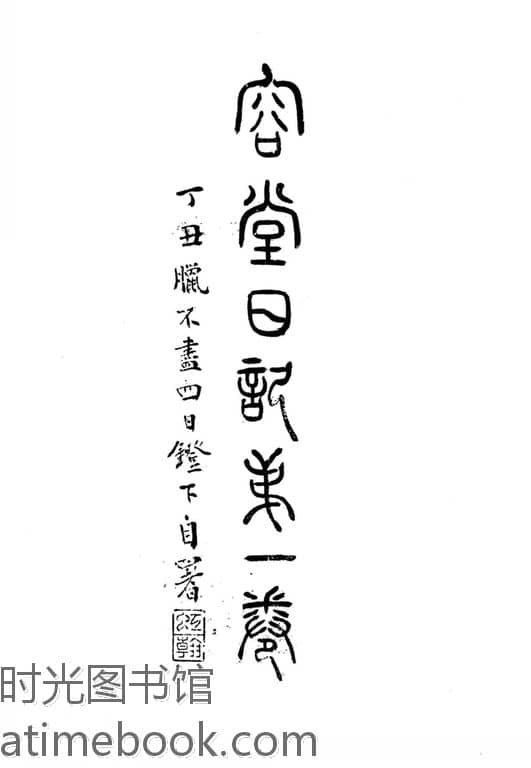 容堂日記弟一卷
丁丑臘不盡四日鐙下自署
时光图书馆
atimebook.com